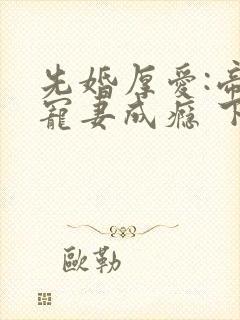 先婚厚爱:帝
寵妻成癮 下
歐勒